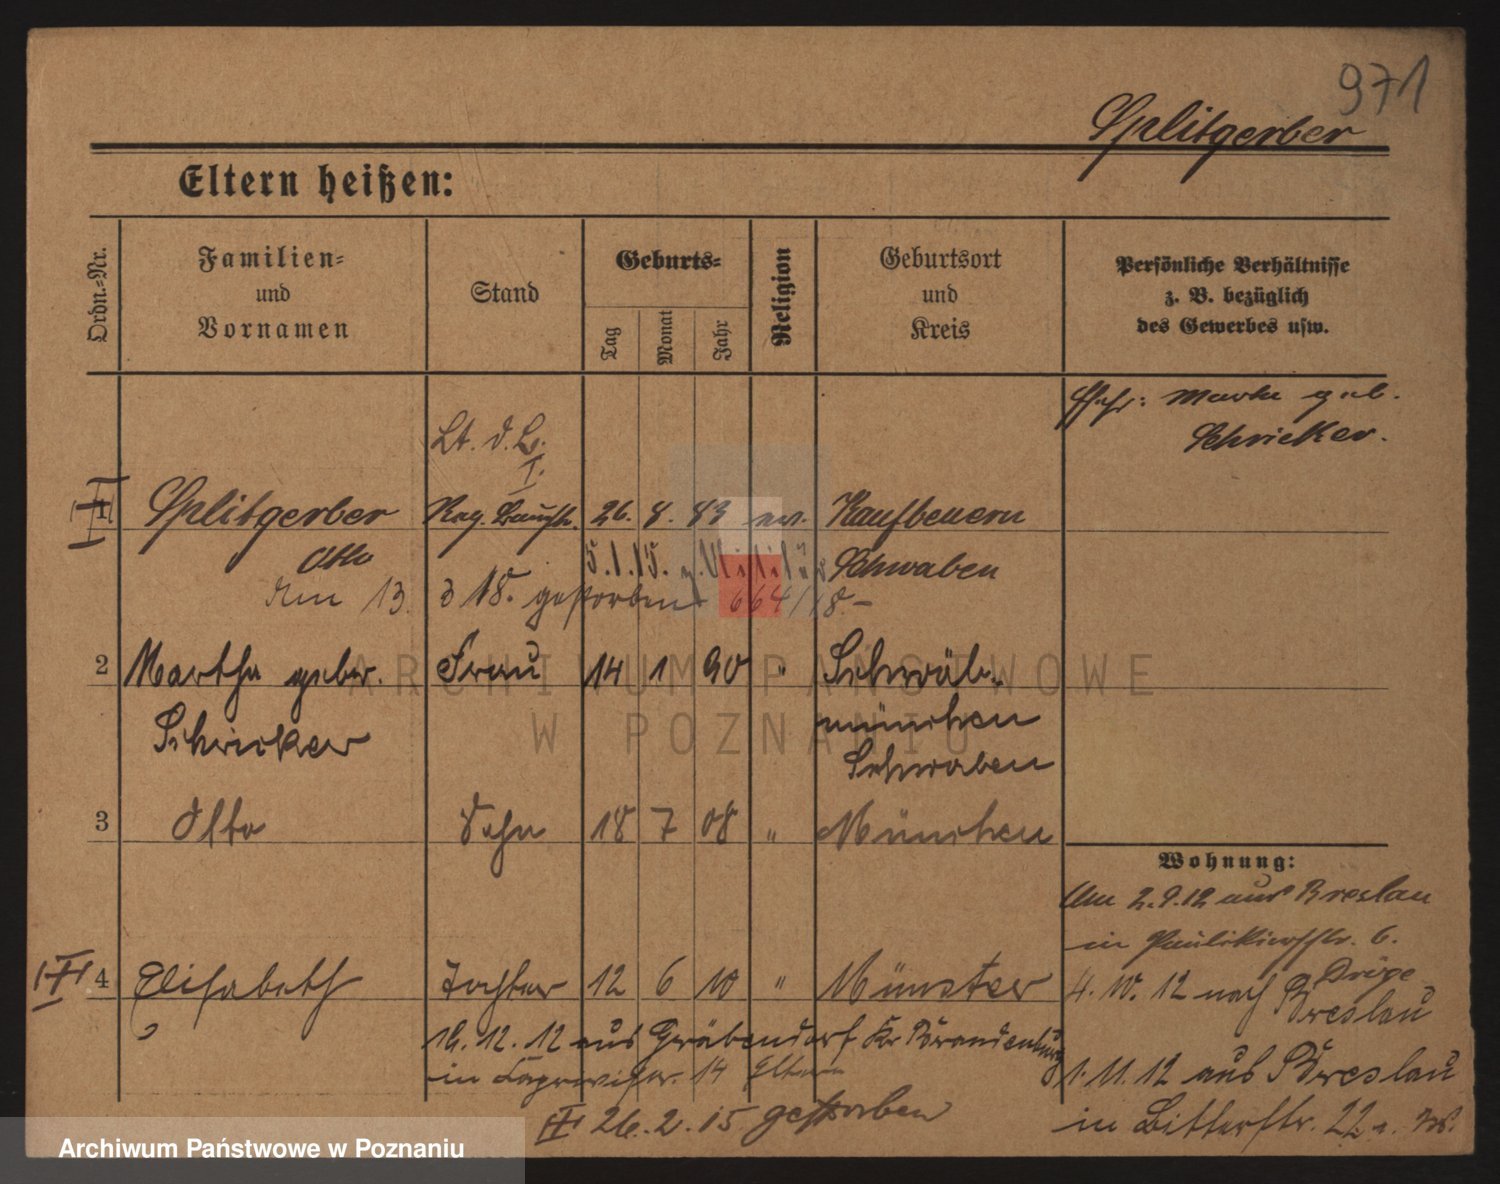 971
Splitgerber
Eltern heißen:
Ordn.-Nr.
Familien-
und
Vornamen
Stand
Geburts-
Tag
Monat
Jahr
Religion
Geburtsort
und
Kreis
Persönliche Verhältnisse
z. B. bezüglich
des Gewerbes usw.
geb.
Schricker.
Lt. d. L.
I.
1 Splitgerber Reg. 26. 8. 83 ev. Kaufbeuern
Otto 5.1.15. z. Militär Schwaben
Am 13. 3 18. gestorben 664/18-
2 Martha gebor. Frau 14 1 90 " Schwab-
Schricker münchen
Schwaben
3 Otto Sohn 18 7 08 " München
Wohnung:
Am 2.9.12 aus Breslau
in Paulikirchstr. 6.
4 Elisabeth Tochter 12 6 10 " Münster
4. 10. 12 nach Breslau
16. 12. 12 aus Gräbendorf Kr Brandenburg
in 14 Eltern
1. 11. 12 aus Breslau
in Bitterstr. 22
26. 2. 15 gestorben
ARCHIWUM PAŃSTWOWE
W POZNANIU
Archiwum Państwowe w Poznaniu